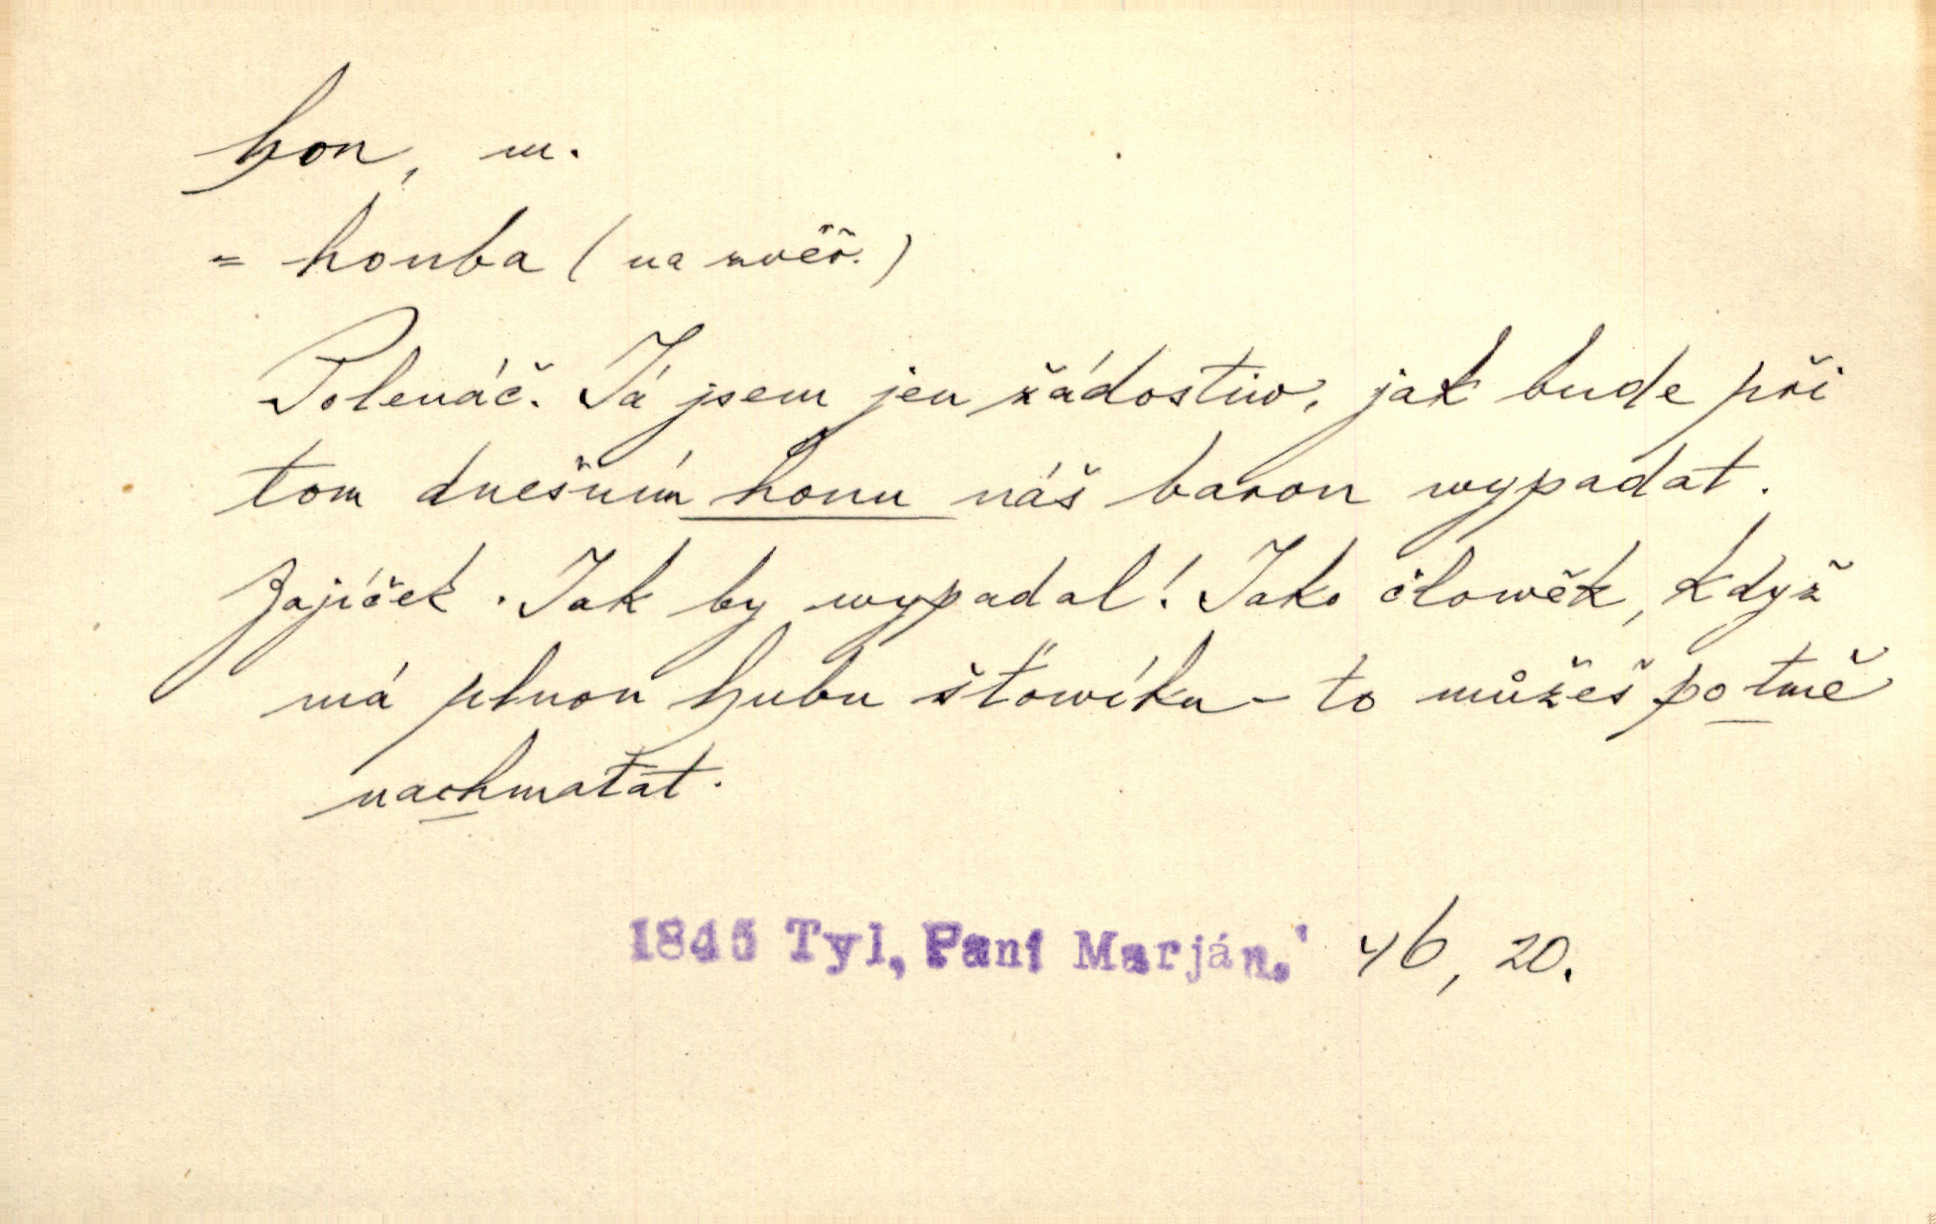 hon, m.
= honba (na zvěř.)
Polenáč. Já jsem jen žádostiw, jak bude při
tom dnešním honu náš baron wypadat.
Zajíček. Jak by wypadal! Jako člowěk, když
má plnou hubu šťowíku – to můžeš potmě
nachmatat.
1845 Tyl, Paní Marján. 46, 20.